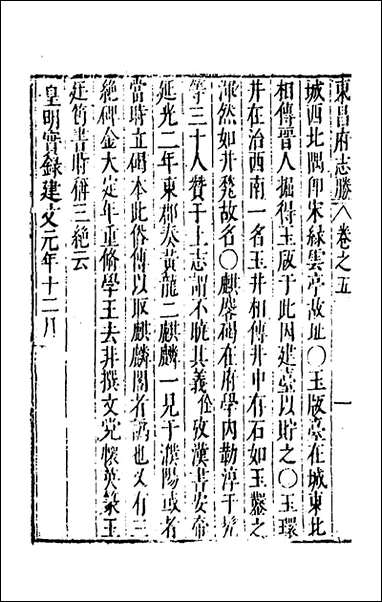 東昌府志勝八卷之五　一
城西北隅卽宋綠雲亭故址〇玉版臺在城東北
相傳晉人掘得玉版于此因建臺以貯之〇玉環
井在治西南一名玉井相傳井中有石如玉甃之
渾然如井甃故名〇麒麟碣在府學內勒淳于髠
等三十人贊于上志謂不曉其義佺攷漢書安帝
延光二年東郡奏黃龍二麒麟一見于濮陽或者
當時立碣本此俗傳以取麒麟閣者訛也又有三
絶碑金大定年重脩學王去非撰文党懷英篆王
廷筠書時稱三絕云
皇明實錄建文元年十二月